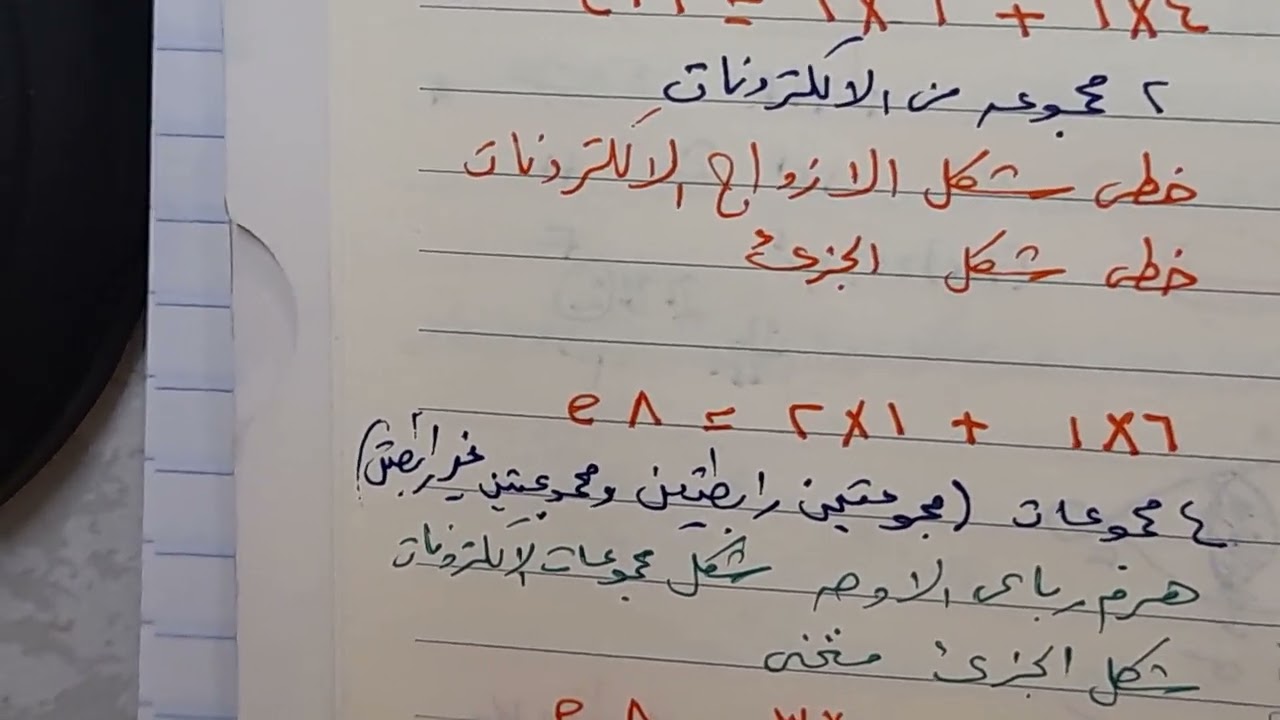 ٢ مجموعه من الالكترونات
خطي شكل الازواج الالكترونات
خطي شكل الجزئ
٦×١ + ١×٢ = ٨ e
٤ مجموعات (مجموعتين رابطتين ومجموعتين غير رابطتين)
هرم رباعي الاوجه شكل مجموعات الالكترونات
شكل الجزئ منحني